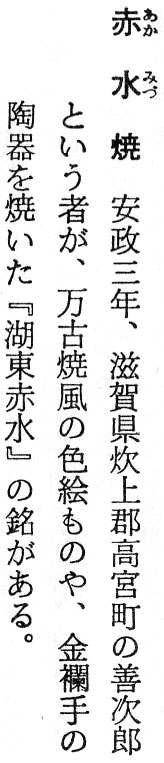 赤水焼 安政三年、滋賀県炊上郡高宮町の善次郎
という者が、万古焼風の色絵ものや、金襴手の
陶器を焼いた『湖東赤水』の銘がある。
あか みづ